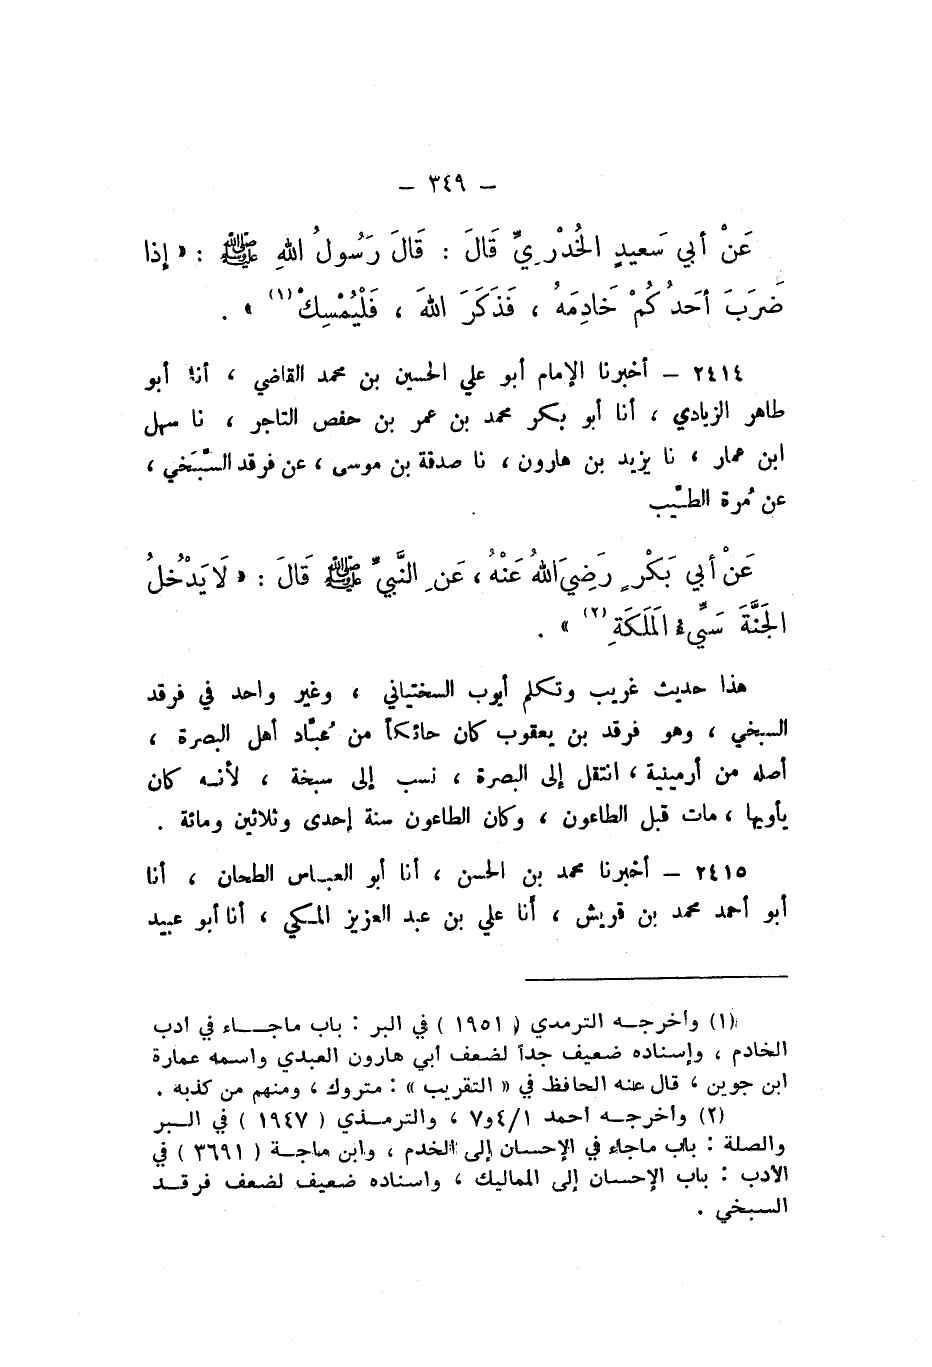 – ٣٤٩ –
عَنْ أَبي سَعيدٍ الخُدْرِيِّ قَالَ : قَالَ رَسُولُ اللهِ ﷺ : « إِذا
ضَرَبَ أَحَدُكُمْ خَادِمَهُ ، فَذَكَرَ اللهَ ، فَلْيُمْسِكْ (١) » .
٢٤١٤ – أخبرنا الإمام أبو علي الحسين بن محمد القاضي ، أنا أبو
طاهر الزيادي ، أنا أبو بكر محمد بن عمر بن حفص التاجر ، نا سهل
ابن عمار ، نا يزيد بن هارون ، نا صدقة بن موسى ، عن فرقد السَّبَخي ،
عن مُرة الطيّب
عَنْ أَبي بَكْرٍ رَضِيَ اللهُ عَنْهُ ، عَنِ النَّبيِّ ﷺ قَالَ : « لَا يَدْخُلُ
الجَنَّةَ سَيِّيءُ المَلَكَةِ (٢) » .
هذا حديث غريب وتكلم أيوب السختياني ، وغير واحد في فرقد
السبخي ، وهو فرقد بن يعقوب كان حائكاً من عُبَّاد أهل البصرة ،
أصله من أرمينية ، انتقل إلى البصرة ، نسب إلى سبخة ، لأنه كان
يأويها ، مات قبل الطاعون ، وكان الطاعون سنة إحدى وثلاثين ومائة .
٢٤١٥ – أخبرنا محمد بن الحسن ، أنا أبو العباس الطحان ، أنا
أبو أحمد محمد بن قريش ، أنا علي بن عبد العزيز المكي ، أنا أبو عبيد
(١) وأخرجه الترمدي ( ١٩٥١ ) في البر : باب ماجاء في أدب
الخادم ، وإسناده ضعيف جداً لضعف أبي هارون العبدي واسمه عمارة
ابن جوين ، قال عنه الحافظ في « التقريب » : متروك ، ومنهم من كذبه .
(٢) وأخرجه أحمد ٤/١و٧ ، والترمذي ( ١٩٤٧ ) في البر
والصلة : باب ماجاء في الإحسان إلى الخدم ، وابن ماجة ( ٣٦٩١ ) في
الأدب : باب الإحسان إلى المماليك ، واسناده ضعيف لضعف فرقد
السبخي .